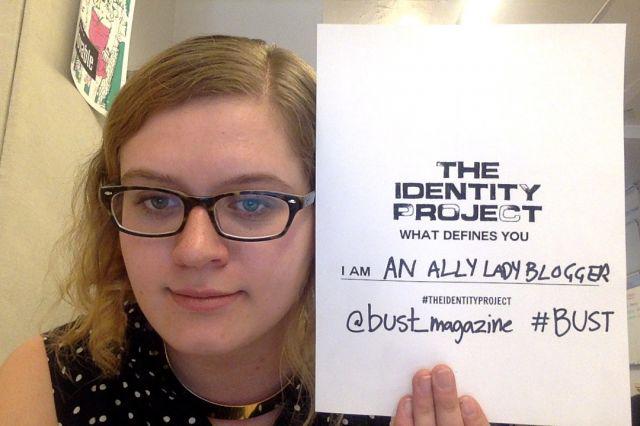 THE
IDENTITY
PROJECT
WHAT DEFINES YOU
I AM AN ALLY LADY BLOGGER
#THEIDENTITYPROJECT
@bust_magazine #BUST